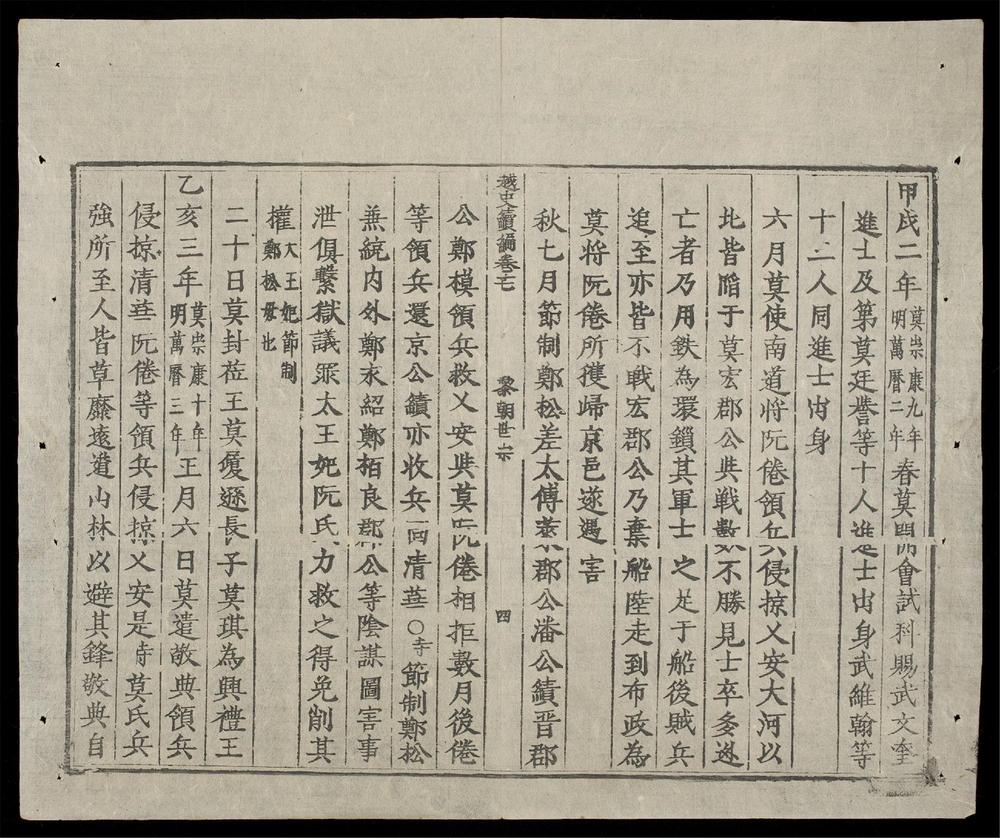 甲戌二年莫崇康九年明萬曆二年春莫開會試科賜武文奎
進士及第莫廷謩等十人進士出身武維翰等
十二人同進士出身
六月莫使南道將阮倦領兵侵掠乂安大河以
北皆陷于莫宏郡公與戰數不勝見士卒多逃
亡者乃用鉄為環鎖其軍士之足于船後賊兵
追至亦皆不戰宏郡公乃棄船陸走到布政為
莫將阮倦所獲歸京邑遂遇害
秋七月節制鄭松差太傅萊郡公潘公績晋郡
越史續編卷之十七 黎朝世宗 四
公鄭模領兵救乂安與莫阮倦相拒數月後倦
等領兵還京公績亦收兵回清華〇時節制鄭松
兼統内外鄭永紹鄭栢良郡公等陰謀圖害事
泄俱繫獄議罪太王妃阮氏力救之得免削其
權太王妃節制鄭松母也
二十日莫封莅王莫履遜長子莫琪為興禮王
乙亥三年莫崇康十年明萬曆三年正月六日莫遣敬典領兵
侵掠清華阮倦等領兵侵掠乂安是時莫氏兵
強所至人皆草靡遠遁山林以避其鋒敬典自